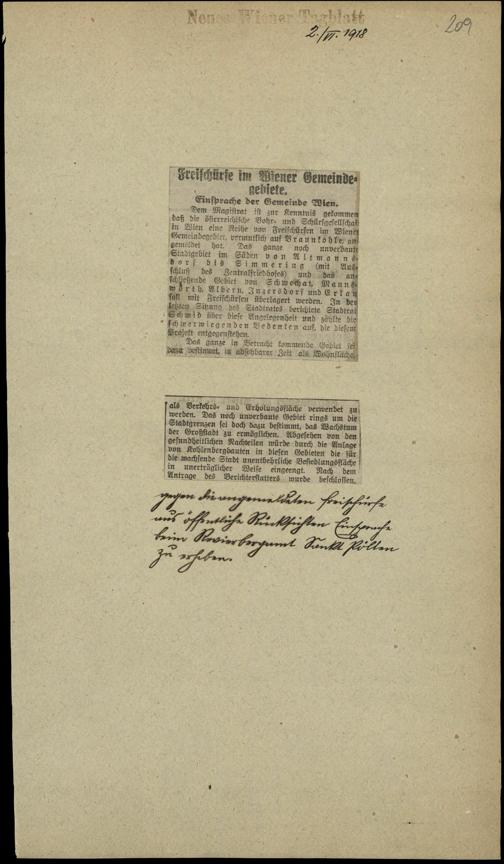 Neues Wiener Tagblatt
209
2./VI. 1918
Freischürfe im Wiener Gemeinde-
gebiete.
Einsprache der Gemeinde Wien.
Dem Magistrat ist zur Kenntnis gekommen
daß die österreichische Bohr- und Schürfgesellschaft
in Wien eine Reihe von Freischürfen im Wiener
Gemeindegebiet, vermutlich auf Braunkohle, an-
gemeldet hat. Das ganze noch unverbaute
Stadtgebiet im Süden von Altmanns-
dorf bis Simmering (mit Aus-
schluß des Zentralfriedhofes) und das an-
schließende Gebiet von Schwechat, Manns-
wörth, Albern, Inzersdorf und Erlaa
soll mit Freischürfen überlagert werden. In der
letzten Sitzung des Stadtrates berichtete Stadtrat
Schmid über diese Angelegenheit und zählte die
schwerwiegenden Bedenken auf, die diesem
Projekt entgegenstehen.
Das ganze in Betracht kommende Gebiet sei
dazu bestimmt, in absehbarer Zeit als Wohnfläche,
als Verkehrs- und Erholungsfläche verwendet zu
werden. Das noch unverbaute Gebiet rings um die
Stadtgrenzen sei doch dazu bestimmt, das Wachstum
der Großstadt zu ermöglichen. Abgesehen von den
gesundheitlichen Nachteilen würde durch die Anlage
von Kohlenbergbauten in diesen Gebieten die für
die wachsende Stadt unentbehrliche Besiedlungsfläche
in unerträglicher Weise eingeengt. Nach dem
Antrage des Berichterstatters wurde beschlossen,
gegen die angemeldeten Freischürfe
aus öffentliche Rücksichten Einsprache
beim Revierbergamt Sankt Pölten
zu erheben.